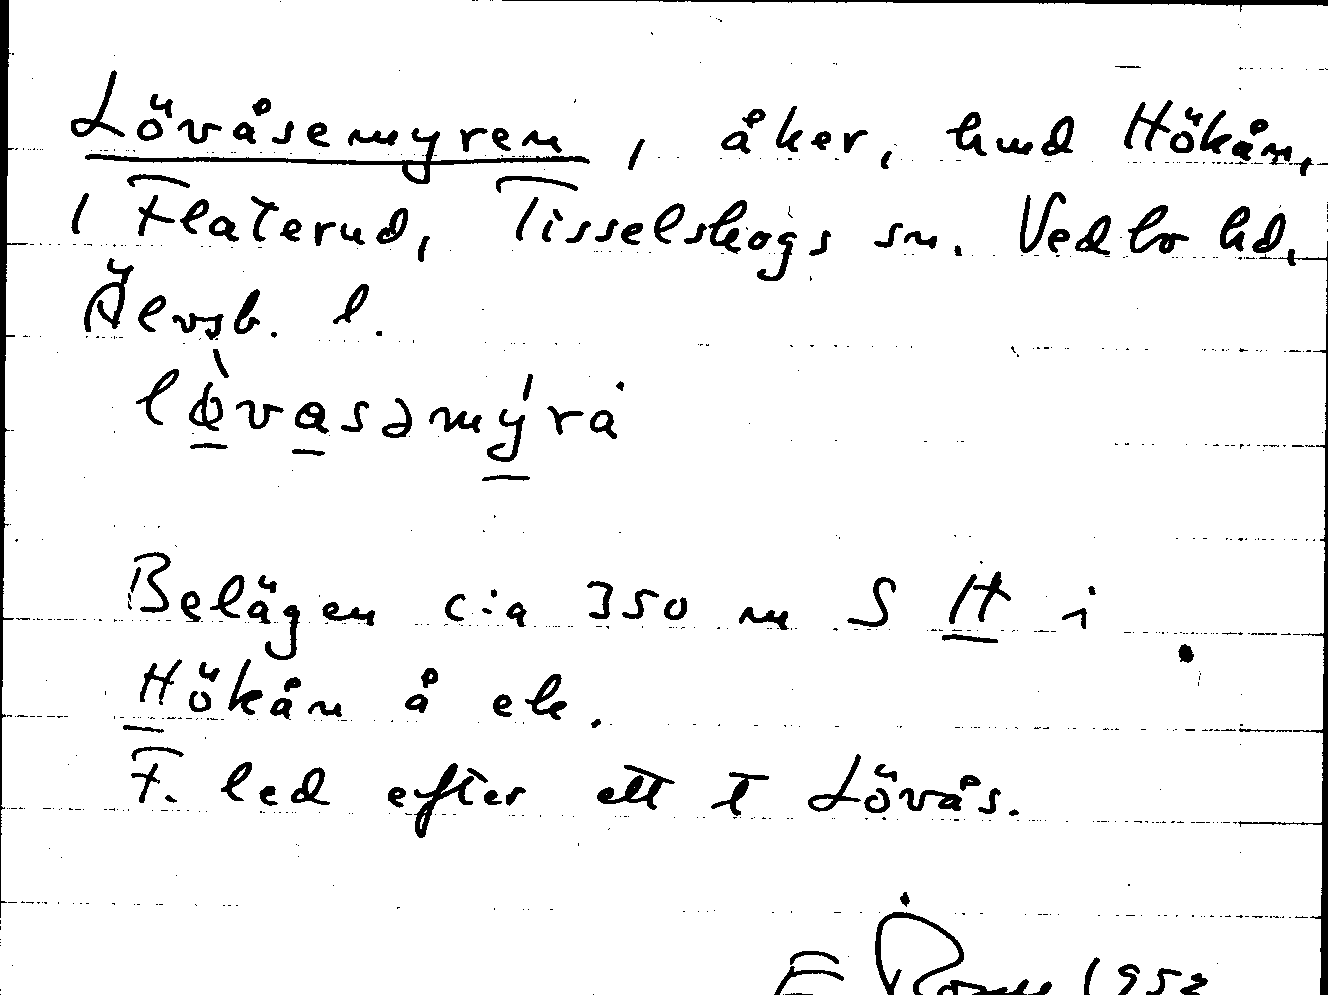 Lövåsemyren, åker, hmd Hökån,
1 Flaterud, Tisselskogs sn. Vedbo hd,
Älvsb. l.
Belägen c:a 350 m S H i
Hökån å ek.
F. led efter ett t Lövås.
1952